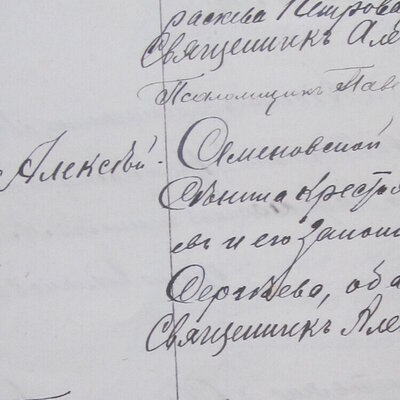 раскева Петрова
Священникъ Але
Псаломщикъ Пав
Алексѣй.
Семеновской
Сѣнина Крестья
въ и его закон
Сергѣева, оба
Священникъ Але